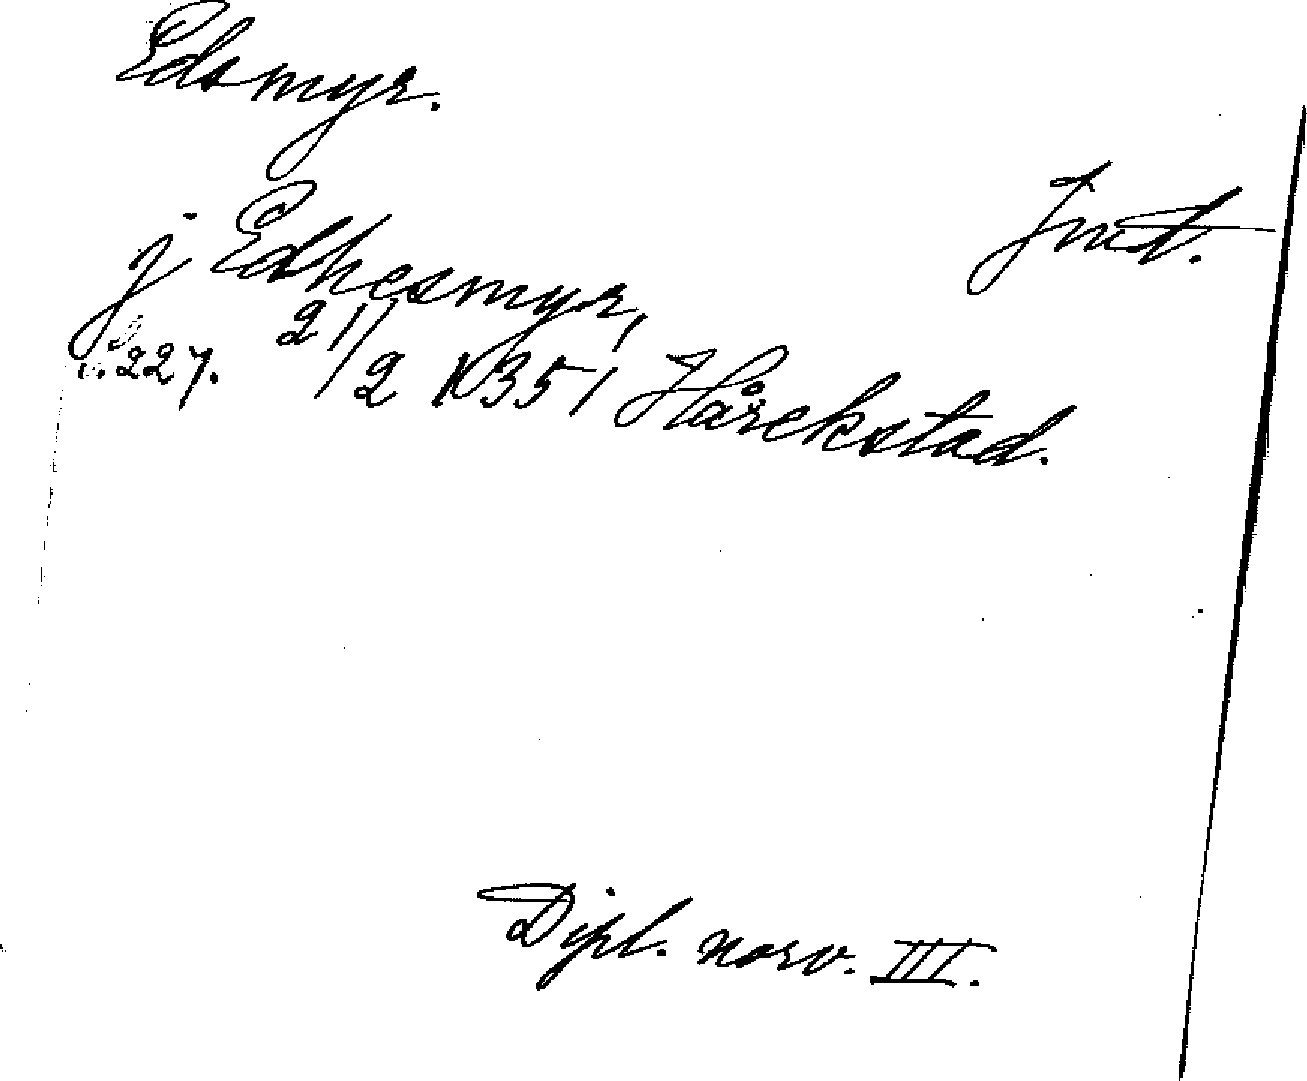 Edsmyr.
Jmt.
j Edhesmyr,
21/2 1351 Hårekstad.
s. 227.
Dipl. norv. III.